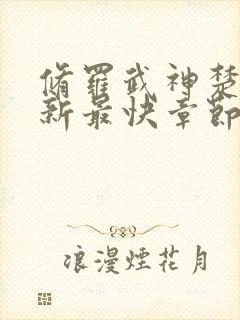 脩羅武神楚
新最快章節
浪漫煙花月